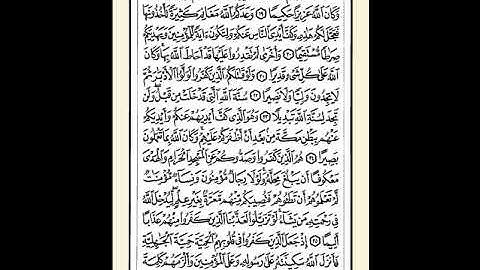 وَكَانَ اللَّهُ عَزِيزًا حَكِيمًا ١٩ وَعَدَكُمُ اللَّهُ مَغَانِمَ كَثِيرَةً تَأْخُذُونَهَا
فَعَجَّلَ لَكُمْ هَٰذِهِ وَكَفَّ أَيْدِيَ النَّاسِ عَنكُمْ وَلِتَكُونَ ءَايَةً لِّلْمُؤْمِنِينَ وَيَهْدِيَكُمْ
صِرَٰطًا مُّسْتَقِيمًا ٢٠ وَأُخْرَىٰ لَمْ تَقْدِرُوا عَلَيْهَا قَدْ أَحَاطَ اللَّهُ بِهَا وَكَانَ
اللَّهُ عَلَىٰ كُلِّ شَيْءٍ قَدِيرًا ٢١ وَلَوْ قَٰتَلَكُمُ الَّذِينَ كَفَرُوا لَوَلَّوُا الْأَدْبَٰرَ ثُمَّ
لَا يَجِدُونَ وَلِيًّا وَلَا نَصِيرًا ٢٢ سُنَّةَ اللَّهِ الَّتِي قَدْ خَلَتْ مِن قَبْلُ وَلَن
تَجِدَ لِسُنَّةِ اللَّهِ تَبْدِيلًا ٢٣ وَهُوَ الَّذِي كَفَّ أَيْدِيَهُمْ عَنكُمْ وَأَيْدِيَكُمْ
عَنْهُم بِبَطْنِ مَكَّةَ مِن بَعْدِ أَنْ أَظْفَرَكُمْ عَلَيْهِمْ وَكَانَ اللَّهُ بِمَا تَعْمَلُونَ
بَصِيرًا ٢٤ هُمُ الَّذِينَ كَفَرُوا وَصَدُّوكُمْ عَنِ الْمَسْجِدِ الْحَرَامِ وَالْهَدْيَ
مَعْكُوفًا أَن يَبْلُغَ مَحِلَّهُ وَلَوْلَا رِجَالٌ مُّؤْمِنُونَ وَنِسَاءٌ مُّؤْمِنَٰتٌ
لَّمْ تَعْلَمُوهُمْ أَن تَطَـُٔوهُمْ فَتُصِيبَكُم مِّنْهُم مَّعَرَّةٌ بِغَيْرِ عِلْمٍ لِّيُدْخِلَ اللَّهُ
فِي رَحْمَتِهِ مَن يَشَاءُ لَوْ تَزَيَّلُوا لَعَذَّبْنَا الَّذِينَ كَفَرُوا مِنْهُمْ عَذَابًا
أَلِيمًا ٢٥ إِذْ جَعَلَ الَّذِينَ كَفَرُوا فِي قُلُوبِهِمُ الْحَمِيَّةَ حَمِيَّةَ الْجَٰهِلِيَّةِ
فَأَنزَلَ اللَّهُ سَكِينَتَهُ عَلَىٰ رَسُولِهِ وَعَلَى الْمُؤْمِنِينَ وَأَلْزَمَهُمْ كَلِمَةَ